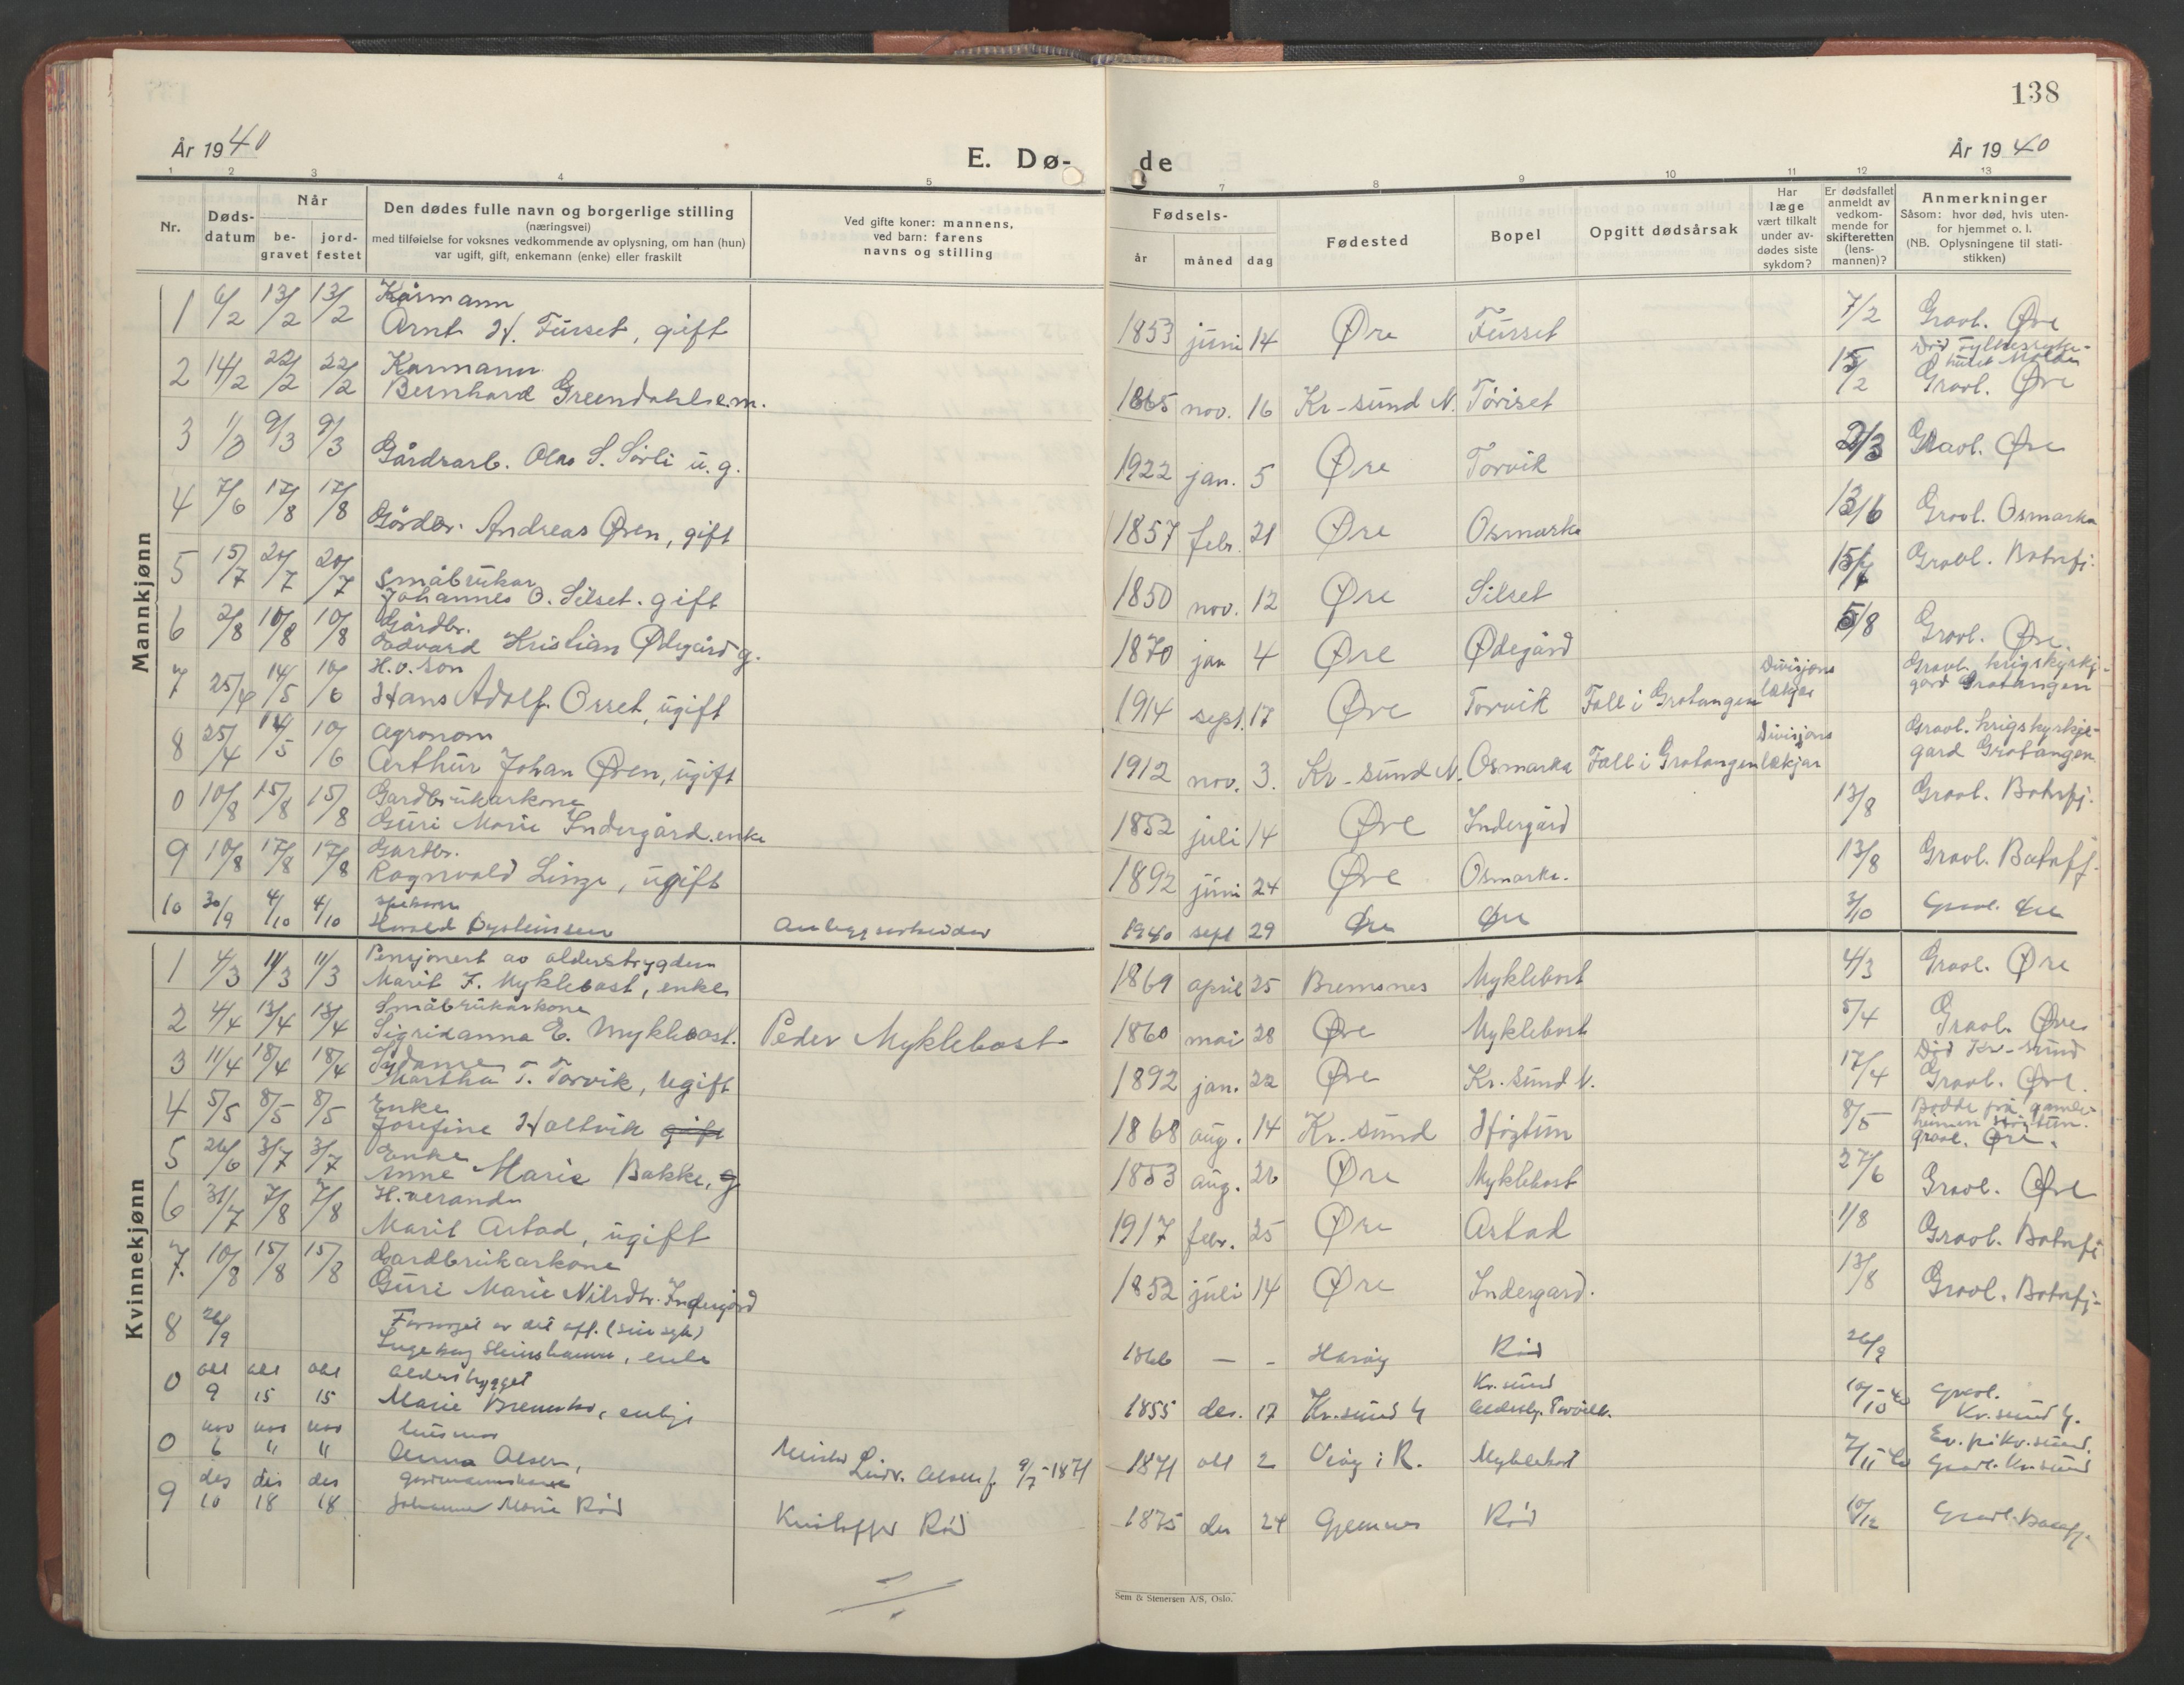 138
År 1940
E. Dø-
de
År 1940
1 2 3 4 5 7 8 9 10 11 12 13
Nr.
Døds-
datum
Når
be-
gravet
jord-
festet
Den dødes fulle navn og borgerlige stilling
(næringsvei)
med tilføielse for voksnes vedkommende av oplysning, om han (hun)
var ugift, gift, enkemann (enke) eller fraskilt
Ved gifte koner: mannens,
ved barn: farens
navns og stilling
Fødsels-
år måned dag
Fødested
Bopel
Opgitt dødsårsak
Har
læge
vært tilkalt
under av-
dødes siste
sykdom?
Er dødsfallet
anmeldt av
vedkom-
mende for
skifteretten
(lens-
mannen)?
Anmerkninger
Såsom: hvor død, hvis uten-
for hjemmet o. l.
(NB. Oplysningene til stati-
stikken)
Mannkjønn
Kårmann
1 6/2 13/2 13/2 Arnt H. Furset, gift 1853 juni 14 Øre Furset 7/2 Gravl. Øre
Død fylkessjuke-
huset Molde
Karmann
2 14/2 22/2 22/2 Bernhard Greendahl e.m. 1865 nov. 16 Kr-sund N. Toriset 15/2 Gravl. Øre
3 1/3 9/3 9/3 Gårdsarb. Olas S. Sørli u.g. 1922 jan. 5 Øre Torvik 2/3 Gravl. Øre
4 7/6 17/8 17/8 Gårdbr. Andreas Øren, gift 1857 febr. 21 Øre Osmarka 13/6 Gravl. Osmarka
Småbrukar
5 15/7 20/7 20/7 Johannes O. Silset. gift 1850 nov. 12 Øre Silset 15/7 Gravl. Botnfj.
Gårdbr.
6 2/8 10/8 10/8 Edvard Kristian Ødegård g. 1870 jan 4 Øre Ødegård 5/8 Gravl. Øre.
H.v. son
7 25/4 14/5 10/6 Hans Adolf Orset, ugift 1914 sept. 17 Øre Torvik Fall i Gratangen Divisjons lækjar Gravl. krigskyrkj-
gard Gratangen
Agronom
8 25/4 14/5 10/6 Arthur Johan Øren, ugift 1912 nov. 3. Kr-sund N. Osmarka Fall i Gratangen Divisjons lækjar Gravl. krigskyrkje-
gard Gratangen.
Gardbrukarkone
0 10/8 15/8 15/8 Guri Marie Indergård. enke 1852 juli 14 Øre Indergård 13/8 Gravl. Botnfj.
Gardbr.
9 10/8 17/8 17/8 Ragnvald Linge, ugift 1892 juni 24 Øre Osmarka. 13/8 Gravl. Batnfj.
spebarn
10 30/9 4/10 4/10 Harald Øysteinsen Anleggsarbeider 1940 sept 29 Øre Øre 3/10 Gravl. Øre
Kvinnekjønn
Pensjonert av alderstrygden
1 4/3 11/3 11/3 Marit F. Myklebost, enke 1869 april 25 Bremsnes Myklebost 4/3 Gravl. Øre
Småbrukarkone
2 4/4 13/4 13/4 Sigridanna E. Myklebost. Peder Myklebost 1860 mai 28 Øre Myklebost 5/4 Gravl. Øre
Sydame
3 11/4 18/4 18/4 Martha T. Torvik, ugift 1892 jan. 22 Øre Kr. sund N. 17/4 Død Kr-sund
Gravl. Øre.
Enke
4 5/5 8/5 8/5 Josefine Holtvik gift 1868 aug. 14 Kr. sund Høgtun 8/5 gamle-
heimen Høgtun.
gravl. Øre.
Enke
5 26/6 3/7 3/7 Anne Marie Bakke, g 1853 aug. 26 Øre Myklebost 27/6 Gravl. Øre
H. verande
6 31/7 7/8 7/8 Marit Astad, ugift 1917 febr. 25 Øre Astad 1/8 Gravl. Botnfj
Gardbrukarkone
7. 10/8 15/8 15/8 Guri Marie Nilsdtr. Indergård 1852 juli 14 Øre Indergard. 13/8 Gravl. Botnfj-
Forsørget av det off. (sin syk)
8 26/9 Ingeborg Steinshamn, enke 1866 — - Harøy Rød 26/9
Alderstrygdet
0 okt 9 okt 15 okt 15 Marie Bremsho, enslig 1855 des. 17 Kr. sund Kr. sund
Alderhj. Torvik. 10/10-40 Gravl.
Kr. sund
husmor
0 nov 6 nov 11 nov 11 Anna Olsen, Ludv. Olsen f. 9/7-1871 1871 okt 2 Veøy i R. Myklebost 7/11-40 Gravl. Kr. sund
gardmannskone
9 des 10 des 18 des 18 Johanne Marie Rød Kristoffer Rød 1875 des 24 Gjemnes Rød 10/12 Gravl. Batnfj.
Sem & Stenersen A/S, Oslo.